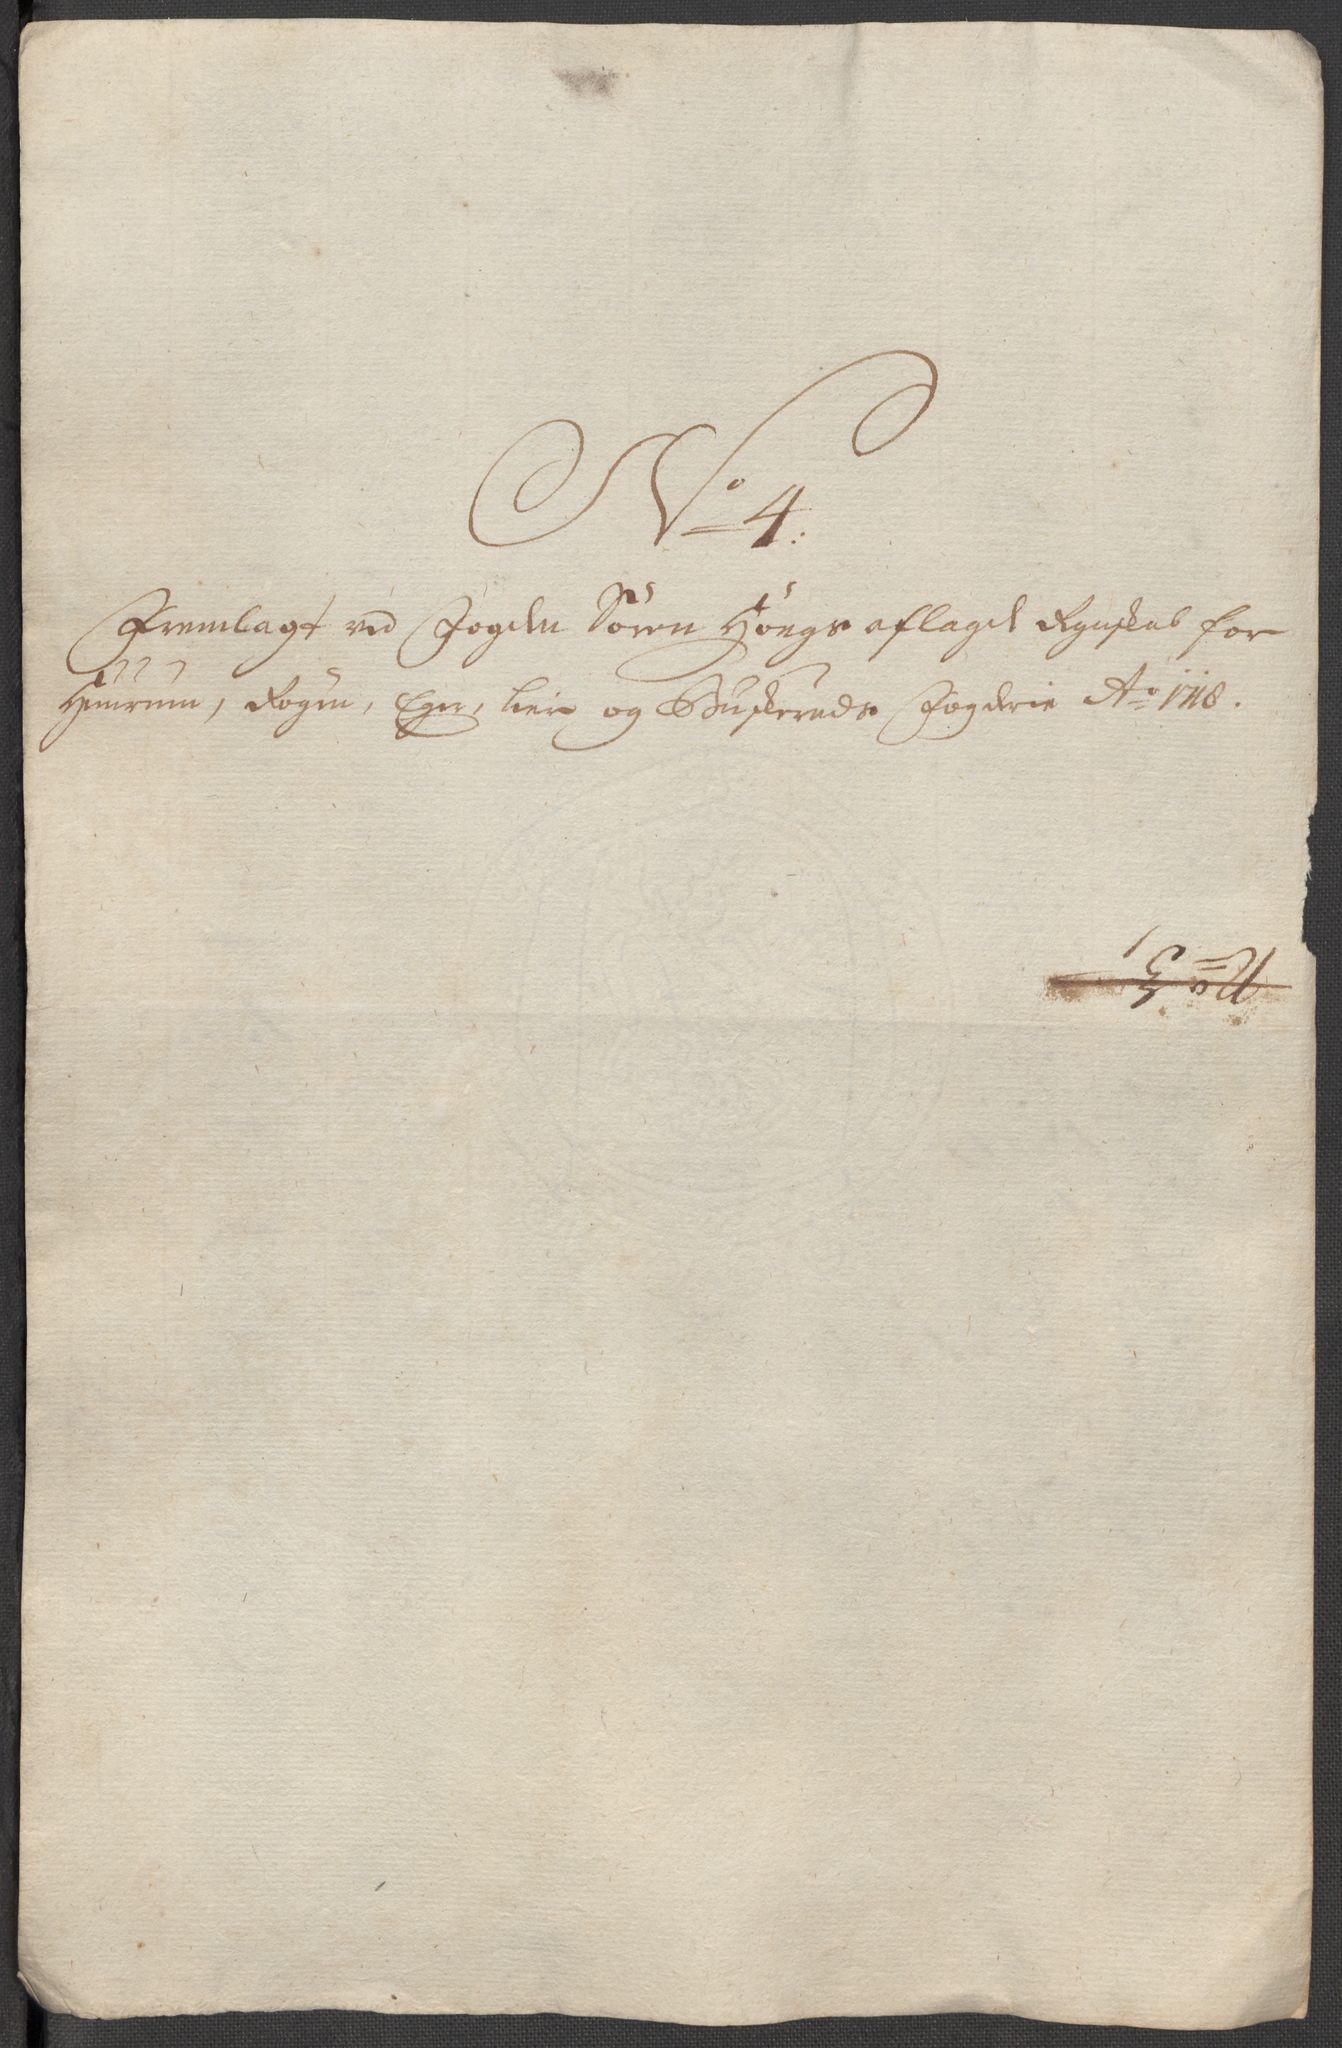 No 4:
Fremlagt ved Fogden Søren Høegs aflagde Regnskab for
Huurum, Røgen, Eger, Lier og Buskeruds Fogderie Ao 1718.
No 3,